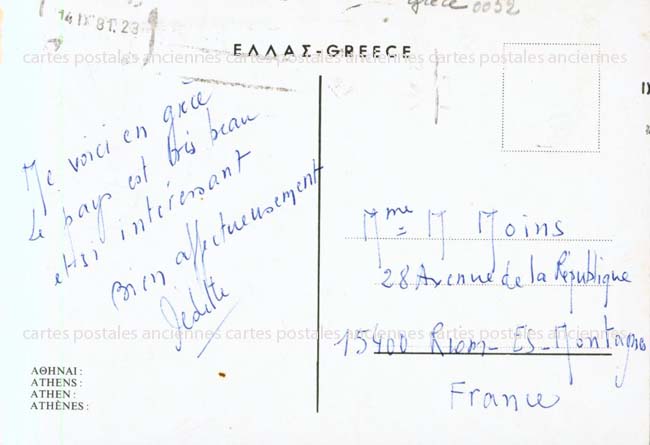 14 IX 81. 23
grèce 0052
ΕΛΛΑΣ-GREECE
cartes postales anciennes cartes postales anciennes cartes postales anciennes
Me voici en grèce
Le pays est très beau
et si intéressant
Bien affectueusement
Mme M Moins
28 Avenue de la République
15400 Riom-Es-Montagnes
France
cartes postales anciennes cartes postales anciennes cartes postales anciennes
ΑΘΗΝΑΙ:
ATHENS:
ATHEN:
ATHÈNES: